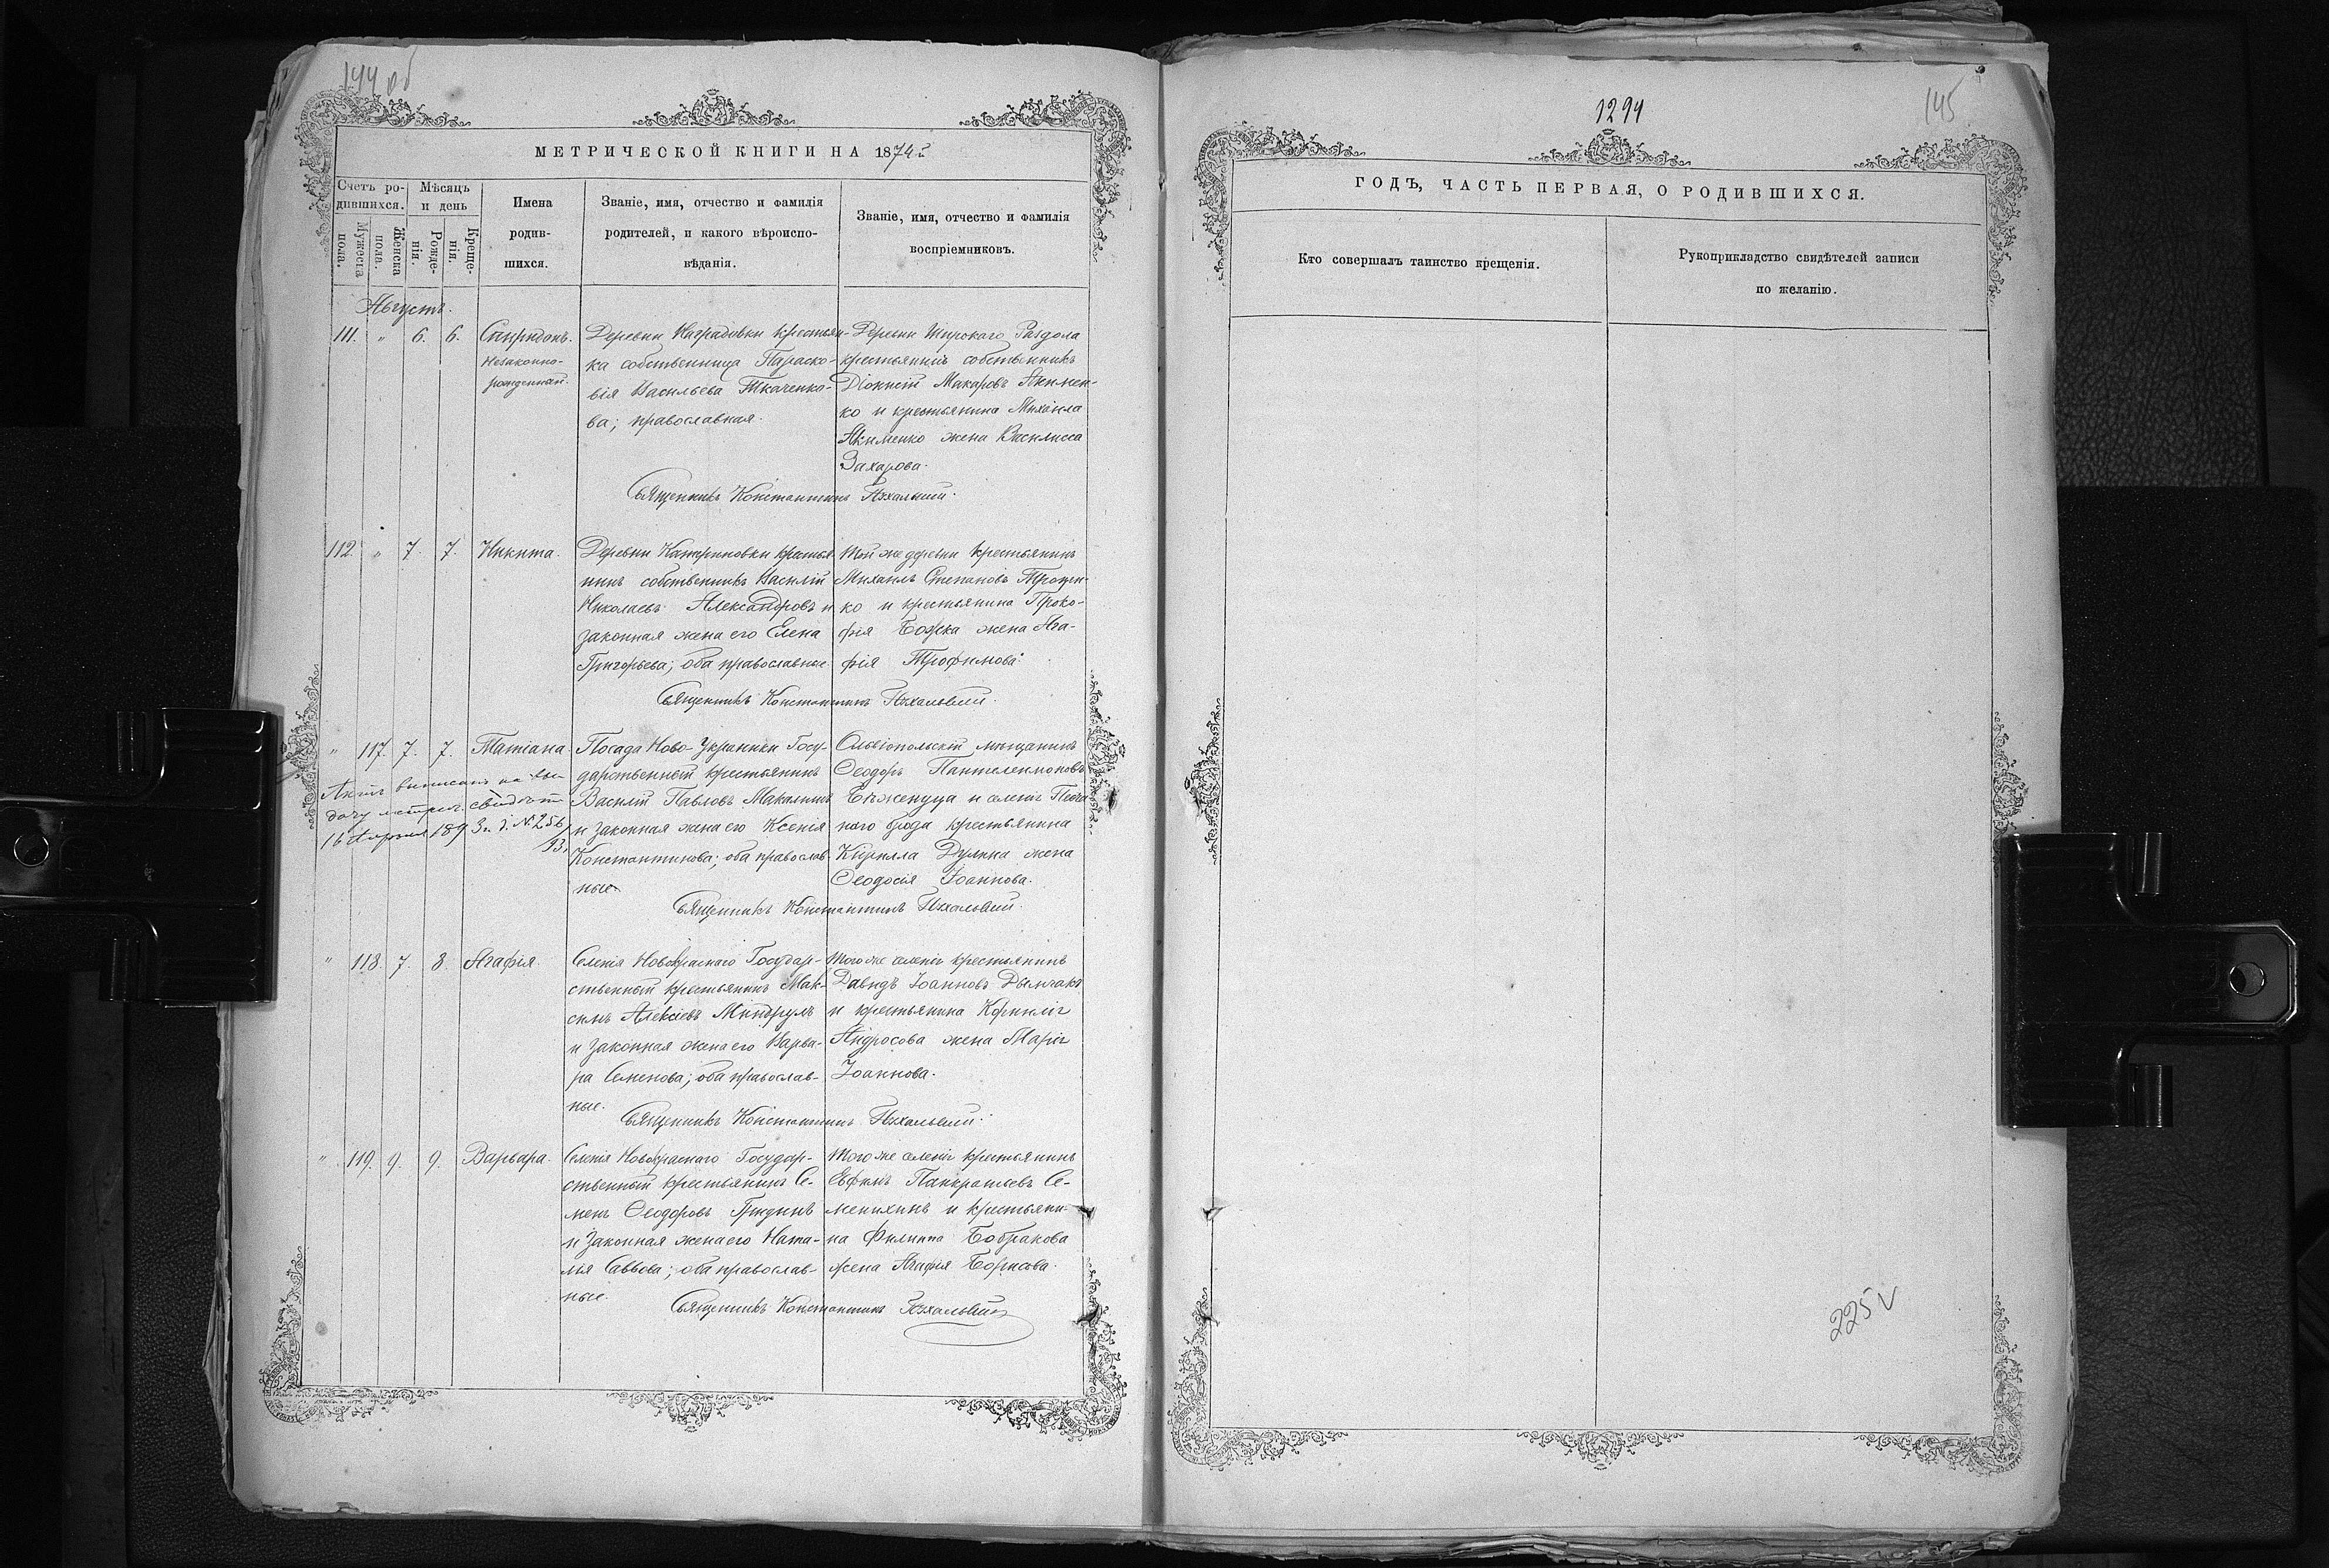 144 об
МЕТРИЧЕСКОЙ КНИГИ НА 1874й
Счетъ ро-
дившихся.
Мужеска
пола.
Женска
пола.
Мѣсяцъ
и день
Рожде-
нія.
Креще-
нія.
Имена
родив-
шихся.
Званіе, имя, отчество и фамилія
родителей, и какого вѣроиспо-
вѣданія.
Званіе, имя, отчество и фамилія
воспріемниковъ.
Августъ.
111. " 6. 6. Спиридонъ.
Незаконно-
рожденный.
Деревни Награdовки крестьян-
ка собственница Параско-
вія Васильева Ткаченко-
ва; православная.
Деревни Широкаго Раздола
крестьянинъ собственникъ
Діонисій Макаровъ Якимен-
ко и крестьянина Михаила
Якименко жена Василисса
Захарова.
Священникъ Константинъ
112. " 7. 7. Никита.
Деревни Катериновки крестья
нинъ собственникъ Василій
Николаевъ Александровъ и
законная жена его Елена
Григорьева; оба православные
Той же деревни крестьянинъ
Михаилъ Степановъ Троцен-
ко и крестьянина Проко-
фія Божка жена Ага-
фія Трофимова.
Священникъ Константинъ
" 117. 7. 7. Татіана
Актъ выписанъ на вы
дачу метрич. свидѣт
16 Апрѣля 1893 г. д. № 256/
93.
Посада Ново-Украинки Госу-
дарственный крестьянинъ
Василій Павловъ Макалишъ
и законная жена его Ксенія
Константинова; оба православ-
ные
Ольвіопольскій мѣщанинъ
Ѳеодоръ Пантелеимоновъ
Бѣженуца и селенія Песча
наго брода крестьянина
Кирилла Дулина жена
Ѳеодосія Іоаннова.
Священникъ Константинъ
" 118. 7. 8. Агафія.
Селенія Новокраснаго Государ-
ственный крестьянинъ Мак-
симъ Алексіевъ Миндрулъ
и законная жена его Варва-
ра Семенова; оба православ-
ные.
Того же селенія крестьянинъ
Давидъ Іоанновъ Дымчакъ
и крестьянина Корнилія
Андросова жена Марія
Іоаннова.
Священникъ Константинъ
" 119. 9. 9. Варвара.
Селенія Новокраснаго Государ-
ственный крестьянинъ Се-
менъ Ѳеодоровъ Гридинъ
и законная жена его Ната-
лія Саввова; оба православ-
ные.
Того же селенія крестьянинъ
Евфимъ Панкратіевъ Се-
менихинъ и крестьяни-
на Филиппа Бобракова
жена Агафія Борисова.
Священникъ Константинъ
1294
145
ГОДЪ, ЧАСТЬ ПЕРВАЯ, О РОДИВШИХСЯ.
Кто совершалъ таинство крещенія.
Рукоприкладство свидѣтелей записи
по желанію.
225 v